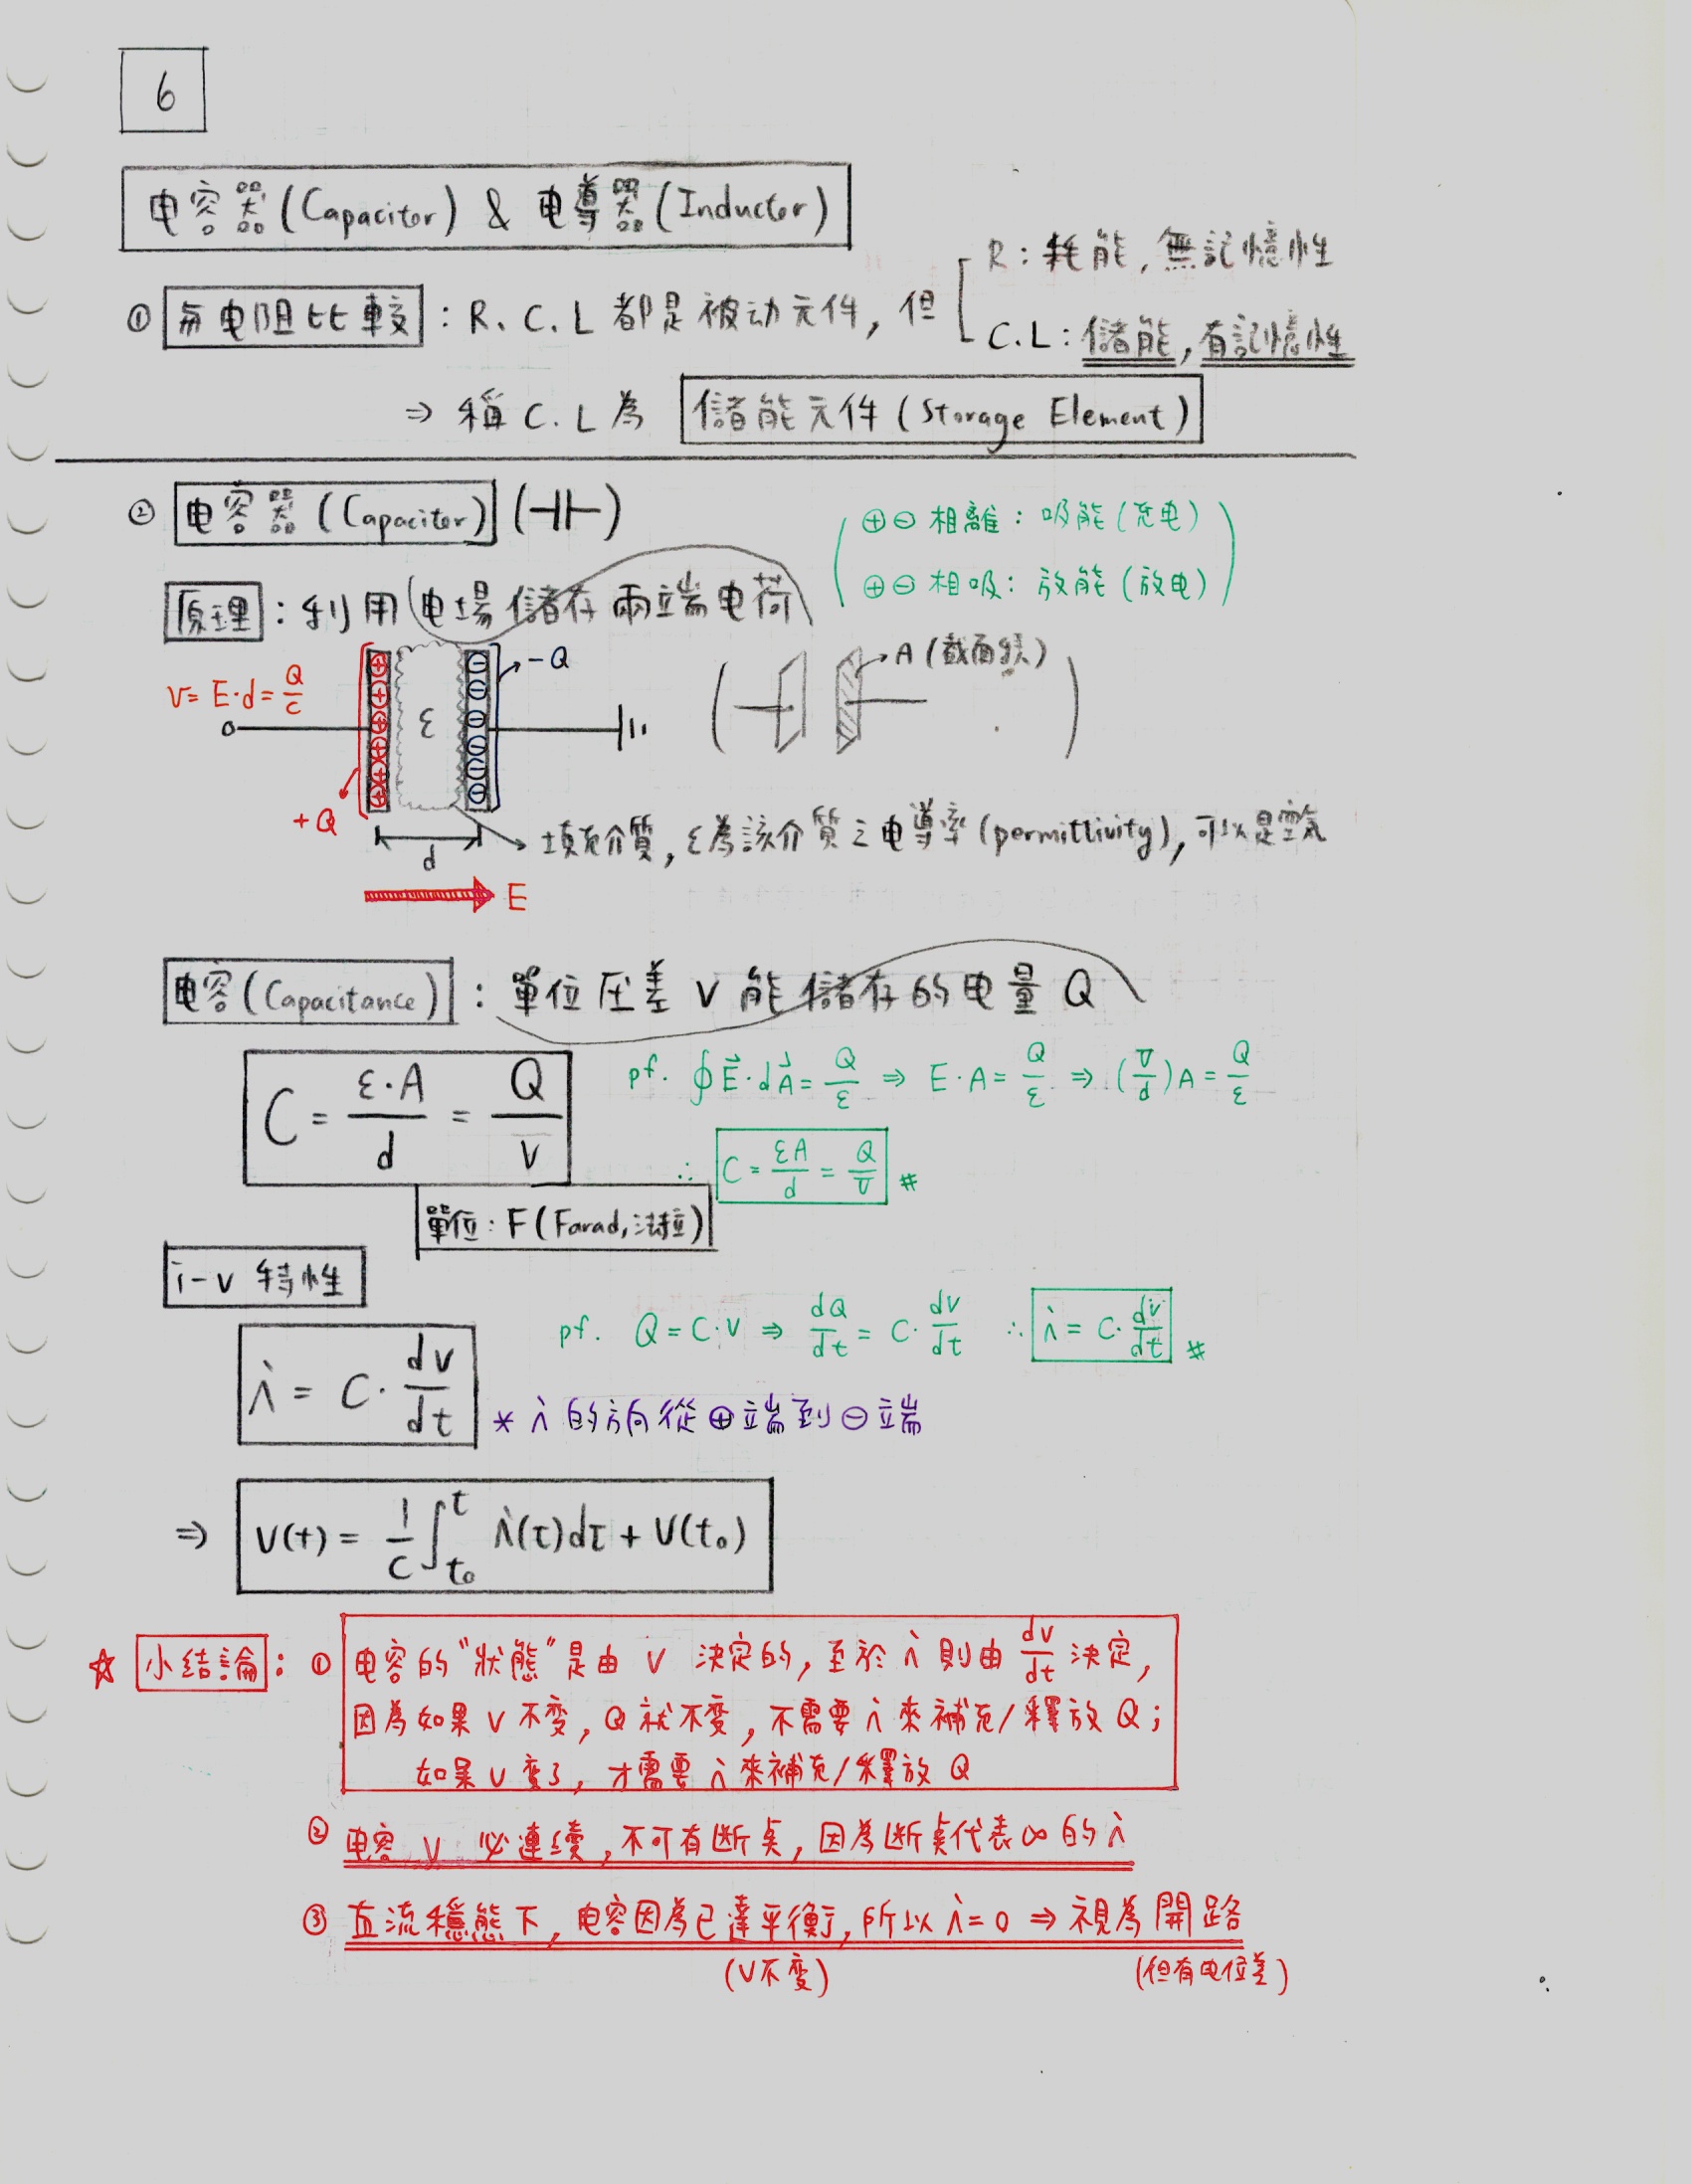 6
电容器(Capacitor) & 电導器(Inductor)
① 與电阻比較 : R、C、L 都是被动元件, 但
R : 耗能, 無記憶性
C.L : 儲能, 有記憶性
⇒ 稱 C.L 為 儲能元件 (Storage Element)
② 电容器 (Capacitor) (⊣⊢)
⊕⊖ 相離 : 吸能 (充电)
⊕⊖ 相吸 : 放能 (放电)
原理 : 利用 电場儲存兩端电荷
-Q
A (截面積)
V = E·d = Q/C
ε
+Q
d
填充介質, ε為該介質之电導率 (permittivity), 可以是空氣
E
电容 (Capacitance) : 單位压差 V 能儲存的电量 Q
C = ε·A/d = Q/V
pf. ∮E⃗·dA⃗ = Q/ε ⇒ E·A = Q/ε ⇒ (V/d)A = Q/ε
∴ C = εA/d = Q/V #
單位 : F (Farad, 法拉)
i-v 特性
i = C · dv/dt
pf. Q = C·V ⇒ dQ/dt = C · dv/dt ∴ i = C · dv/dt #
* i 的方向從 ⊕ 端到 ⊖ 端
⇒ V(t) = 1/C ∫_{t₀}^{t} i(τ)dτ + V(t₀)
☆ 小結論 : ① 电容的"狀態"是由 V 決定的, 至於 i 則由 dv/dt 決定,
因為如果 V 不变, Q 就不变, 不需要 i 來補充/釋放 Q ;
如果 V 变了, 才需要 i 來補充/釋放 Q
② 电容 V 必連續, 不可有断奌, 因為断奌代表 ∞ 的 i
③ 直流穩態下, 电容因為已達平衡, 所以 i = 0 ⇒ 視為開路
(V不变) (但有电位差)